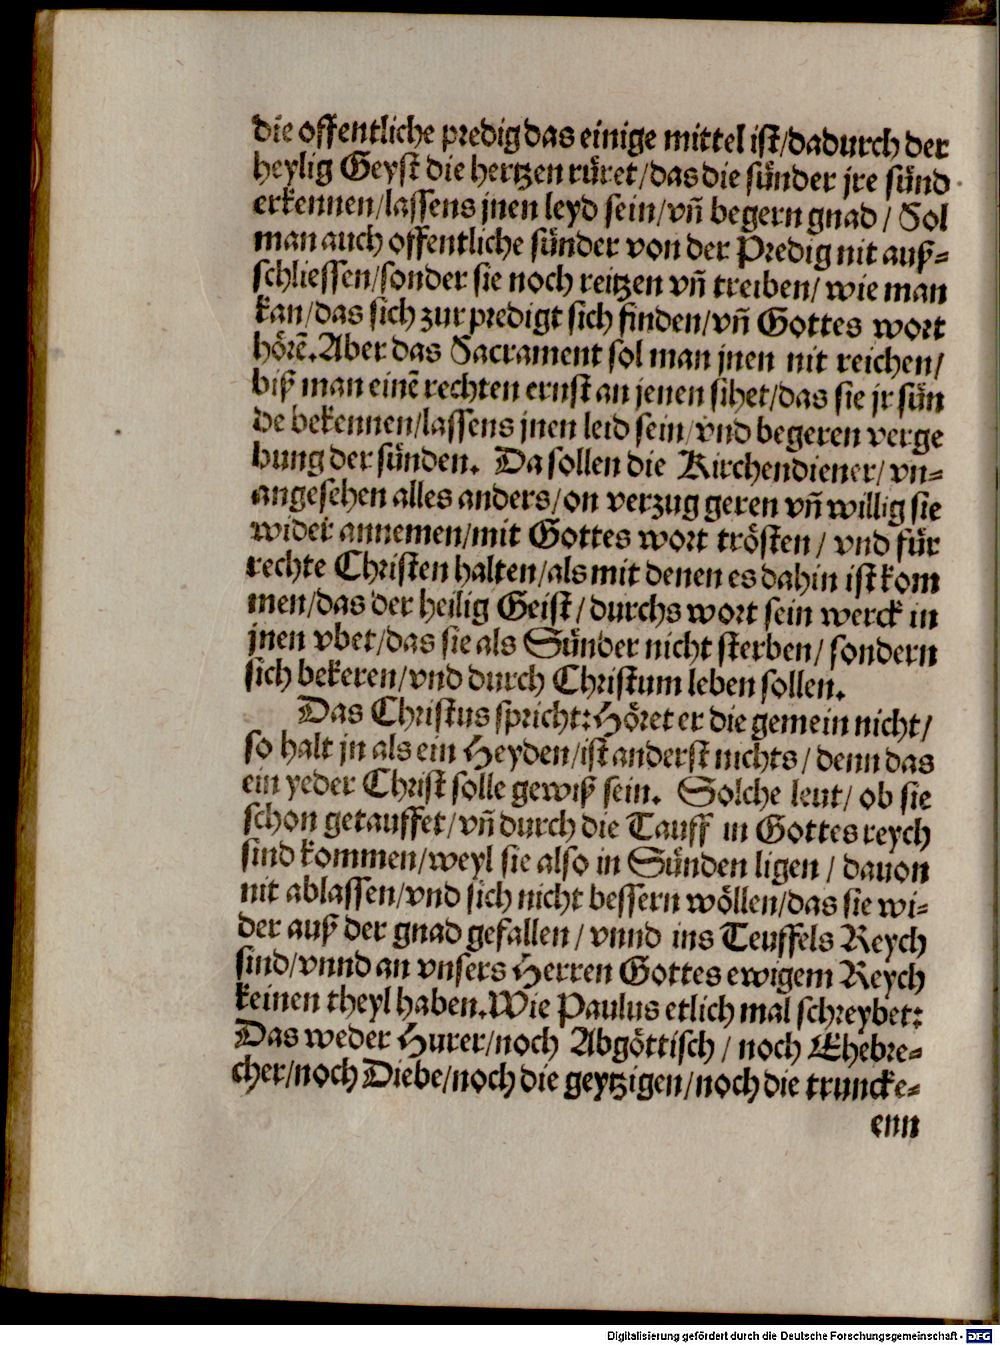 die offentliche predig das einige mittel ist/dadurch der
heylig Geyst die hertzen rüret/das die sünder jre sünd
erkennen/lassens jnen leyd sein/vñ begern gnad/ Sol
man auch offentliche sünder von der Predig nit auß⸗
schliessen/sonder sie noch reitzen vñ treiben/ wie man
kan/das sich zur predigt sich finden/vñ Gottes wort
hörẽ. Aber das Sacrament sol man jnen nit reichen/
biß man einẽ rechten ernst an jenen sihet/das sie jr sün
de bekennen/lassens jnen leid sein/vnd begeren verge
bung der sünden. Da sollen die Kirchendiener/ vn⸗
angesehen alles anders/on verzug geren vñ willig sie
wider annemen/mit Gottes wort trösten/ vnd für
rechte Christen halten/als mit denen es dahin ist kom
men/das der heilig Geist/ durchs wort sein werck in
jnen vbet/das sie als Sünder nicht sterben/ sondern
sich bekeren/vnd durch Christum leben sollen.
Das Christus spricht: Höret er die gemein nicht/
so halt jn als ein Heyden/ist anderst nichts/ denn das
ein yeder Christ solle gewiß sein. Solche leut/ ob sie
schon getauffet/vñ durch die Tauff in Gottes reych
sind kommen/weyl sie also in Sünden ligen/ dauon
nit ablassen/vnd sich nicht bessern wöllen/das sie wi⸗
der auß der gnad gefallen/ vnnd ins Teuffels Reych
sind/vnnd an vnsers Herren Gottes ewigem Reych
keinen theyl haben. Wie Paulus etlich mal schreybet:
Das weder Hurer/noch Abgöttisch/ noch Ehebre⸗
cher/noch Diebe/noch die geytzigen/noch die truncke⸗
enn
Digitalisierung gefördert durch die Deutsche Forschungsgemeinschaft - DFG